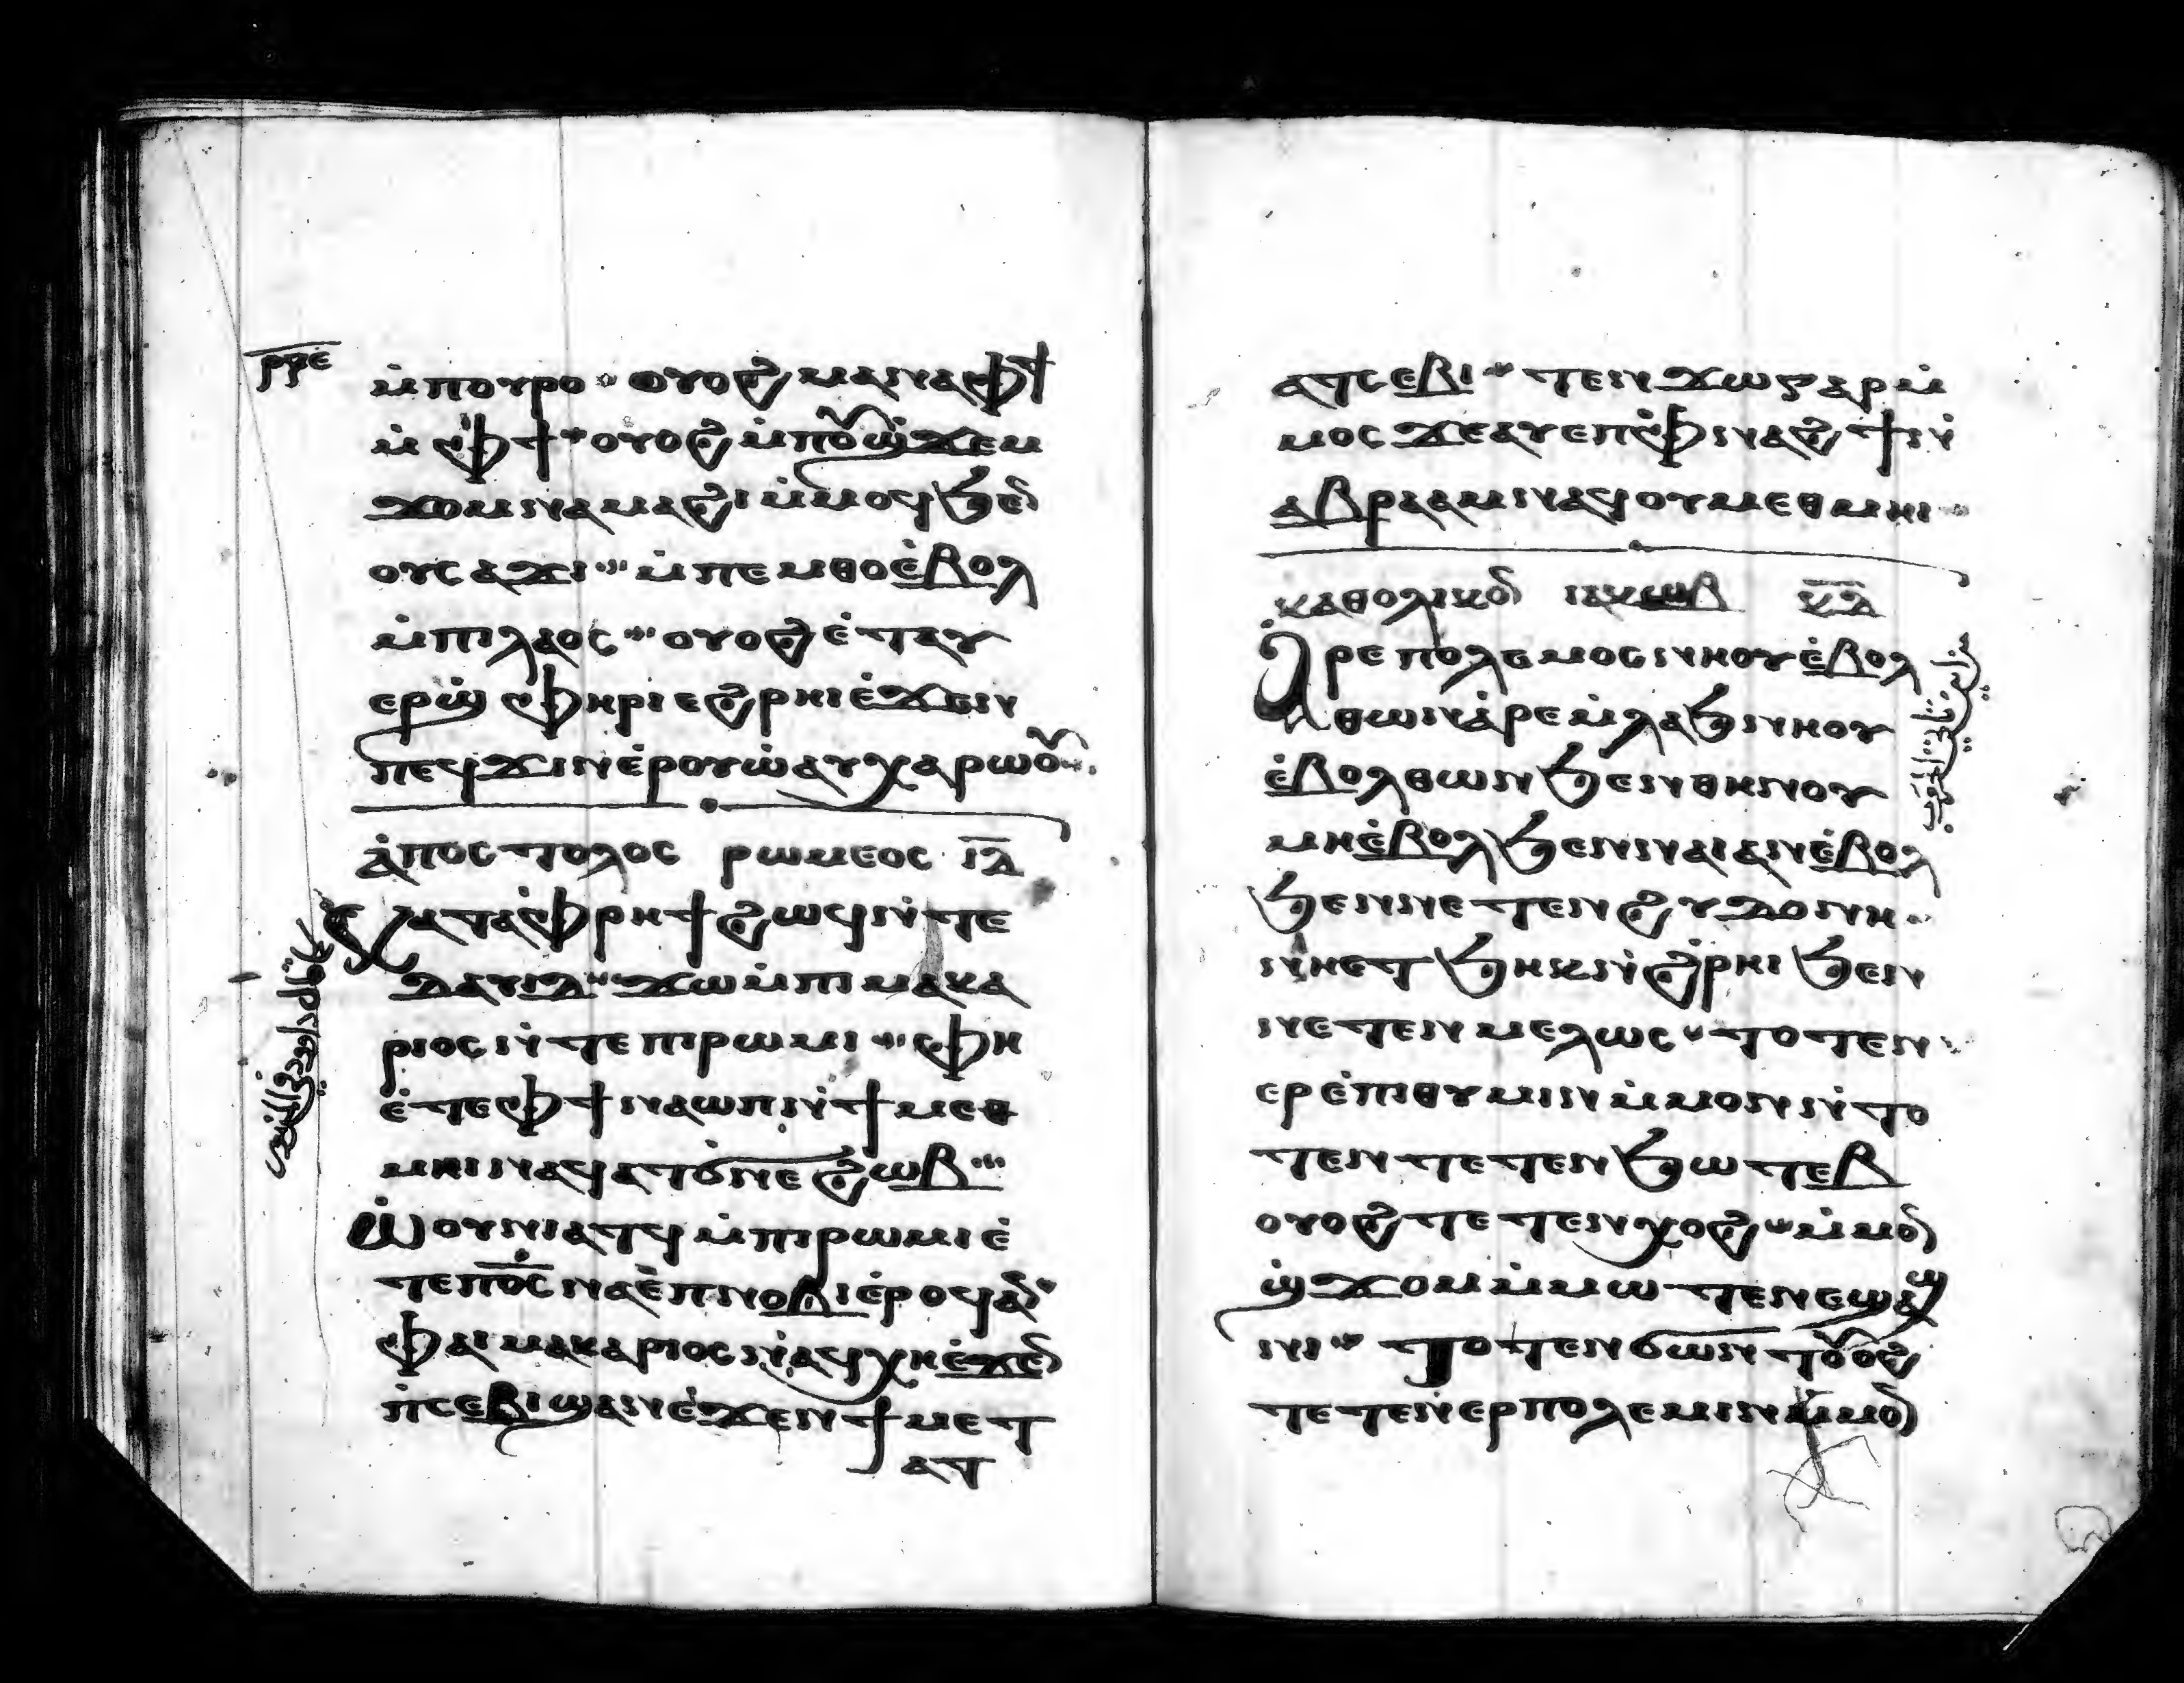 ⲣϥⲉ
ⲙ̀ⲡⲟⲩⲣⲟ ⲟⲩⲟϩ ⲙⲁⲛⲁⲫϯ
ⲙ̀ⲫϯ ⲟⲩⲟϩ ⲙ̀ⲡⲟⲩϣ̀ϫⲉⲙ
ϫⲟⲙⲛⲁⲙⲁϩⲓ ⲙ̀ⲙⲟϥϧⲉⲛ
ⲟⲩⲥⲁϫⲓ ⲙ̀ⲡⲉⲙⲑⲟⲉ̀ⲃⲟⲗ
ⲙ̀ⲡⲓⲗⲁⲟⲥ ⲟⲩⲟϩ ⲉ̀ⲧⲁⲩ
ⲉⲣϣ̀ⲫⲏⲣⲓ ⲉϩⲣⲏⲓⲉ̀ϫⲉⲛ
ⲡⲉϥϫⲓⲛⲉ̀ⲣⲟⲩⲱ̀ⲁⲩⲭⲁⲣⲱⲟⲩ
ⲁ̀ⲡⲟⲥⲧⲟⲗⲟⲥ ⲣⲱⲙⲉⲟⲥ ⲓⲇ
ⲕⲁⲧⲁⲫ̀ⲣⲏϯϩⲱϥⲛ̀ⲧⲉ
ⲇⲁⲩⲓⲇ ϫⲱⲙ̀ⲡⲓⲙⲁⲕⲁ
ⲣⲓⲟⲥⲛ̀ⲧⲉⲡⲓⲣⲱⲙⲓ ⲫⲏ
ⲉ̀ⲧⲉⲫϯⲛⲁⲱⲡⲛ̀ϯⲙⲉⲑ
ⲙⲏⲓⲛⲁϥⲁⲧϭⲛⲉϩⲱⲃ
ⲱ̀ⲟⲩⲛⲓⲁⲧϥⲙ̀ⲡⲓⲣⲱⲙⲓⲉ̀
ⲧⲉⲡⲟ̅ⲥ̅ⲛⲁⲉ̀ⲡⲛⲟⲃⲓⲉ̀ⲣⲟϥⲁⲛ
ⲫⲁⲓⲙⲁⲕⲁⲣⲓⲟⲥⲛⲁϥⲭⲏⲉ̀ϫⲉⲛ
ⲡ̀ⲥⲉⲃⲓϣⲁⲛⲉ̀ϫⲉⲛϯⲙⲉⲧ
ⲁⲧ
ⲁⲧⲥⲉⲃⲓ ⲧⲉⲛϫⲱⲅⲁⲣⲙ̀
ⲙⲟⲥϫⲉⲁⲩⲉⲡⲫ̀ⲛⲁϩϯⲛ̀
ⲁⲃⲣⲁⲁⲙⲛⲁϥⲟⲩⲙⲉⲑⲙⲏⲓ
ⲕⲁⲑⲟⲗⲓⲕⲟⲛ ⲓⲁⲕⲱⲃ ⲕⲇ
ⲁ̀ⲣⲉⲡⲟⲗⲉⲙⲟⲥⲛⲏⲟⲩⲉ̀ⲃⲟⲗ
ⲑⲱⲛⲁ̀ⲣⲉⲙ̀ⲗⲁϧⲛⲏⲟⲩ
ⲉ̀ⲃⲟⲗⲑⲱⲛϧⲉⲛⲑⲏⲛⲟⲩ
ⲙⲏⲉ̀ⲃⲟⲗϧⲉⲛⲛⲁⲓⲁⲛⲉ̀ⲃⲟⲗ
ϧⲉⲛⲛⲉⲧⲉⲛϩⲩⲇⲟⲛⲏ
ⲛⲏⲉⲧϧⲏⲕⲛ̀ϩ̀ⲣⲏⲓϧⲉⲛ
ⲛⲉⲧⲉⲛⲙⲉⲗⲱⲥ ⲧⲟⲧⲉⲛ
ⲉⲣⲉ̀ⲡⲓⲑⲩⲙⲓⲛⲙ̀ⲙⲟⲛⲛ̀ⲧⲟ
ⲧⲉⲛⲧⲉⲧⲉⲛϧⲱⲧⲉⲃ
ⲟⲩⲟϩⲧⲉⲧⲉⲛⲭⲟϩ ⲙ̀ⲙⲟⲛ
ϣ̀ϫⲟⲙⲙ̀ⲙⲱⲧⲉⲛⲉϣⲁϣ
ⲛⲓ ⲧⲟⲧⲉⲛϭⲱⲛⲧⲟⲩⲟϩ
ⲧⲉⲧⲉⲛⲉⲣⲡⲟⲗⲉⲙⲓⲛⲙ̀ⲙⲟⲛ